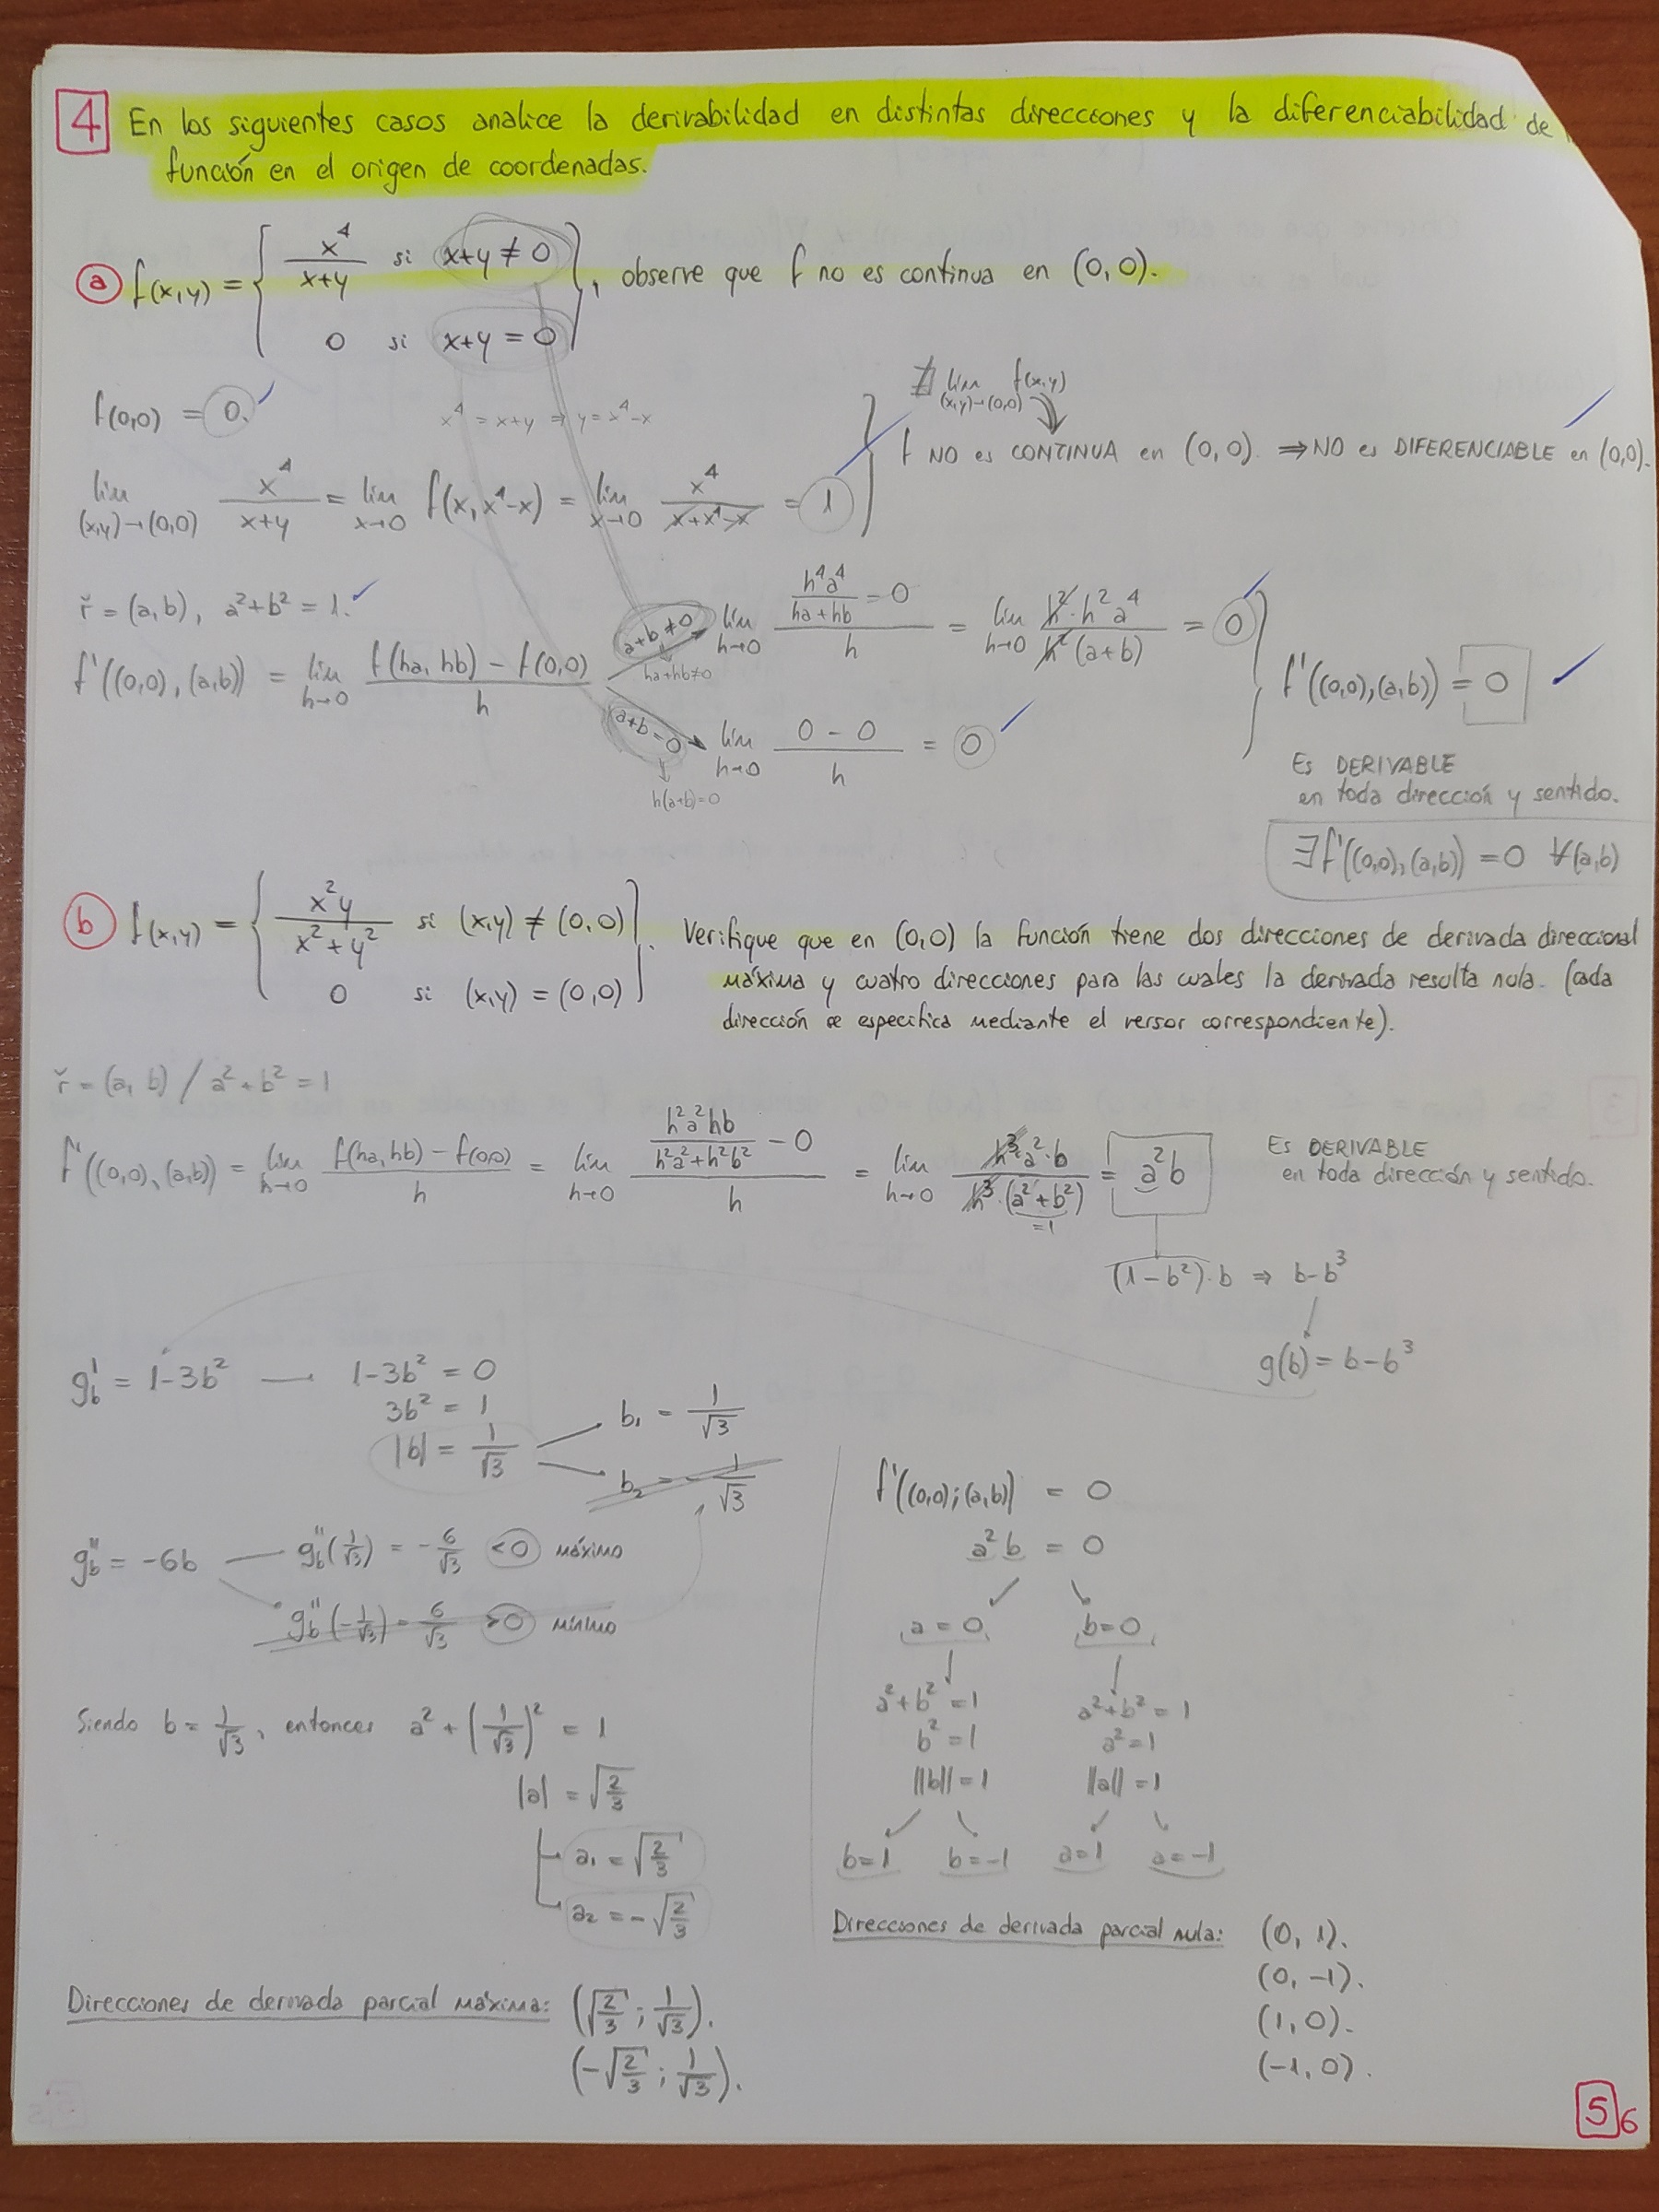 4 En los siguientes casos analice la derivabilidad en distintas direcciones y la diferenciabilidad de
función en el origen de coordenadas.
a f(x,y) = { x⁴/(x+y) si x+y ≠ 0 }, observe que f no es continua en (0,0).
0 si x+y = 0
f(0,0) = 0.
x⁴ = x+y ⇒ y = x⁴-x
∄ lim (x,y)→(0,0) f(x,y)
f NO es CONTINUA en (0,0). ⇒ NO es DIFERENCIABLE en (0,0).
lim (x,y)→(0,0) x⁴/(x+y) = lim x→0 f(x, x⁴-x) = lim x→0 x⁴/(x+x⁴-x) = 1
ř = (a,b), a²+b² = 1.
a+b ≠ 0 lim h→0 (h⁴a⁴/(ha+hb) - 0)/h = lim h→0 h²·h²a⁴/(h²(a+b)) = 0
ha+hb≠0
f'((0,0),(a,b)) = lim h→0 (f(ha,hb) - f(0,0))/h
f'((0,0),(a,b)) = 0
a+b = 0 lim h→0 (0 - 0)/h = 0
h(a+b)=0
Es DERIVABLE
en toda dirección y sentido.
∃f'((0,0),(a,b)) = 0 ∀(a,b)
b f(x,y) = { x²y/(x²+y²) si (x,y) ≠ (0,0) }. Verifique que en (0,0) la función tiene dos direcciones de derivada direccional
0 si (x,y) = (0,0)
máxima y cuatro direcciones para las cuales la derivada resulta nula. (cada
dirección se especifica mediante el versor correspondiente).
ř = (a, b) / a²+b² = 1
f'((0,0),(a,b)) = lim h→0 (f(ha,hb) - f(0,0))/h = lim h→0 (h²a²hb/(h²a²+h²b²) - 0)/h = lim h→0 h³·a²·b/(h³·(a²+b²)) = a²b
=1
Es DERIVABLE
en toda dirección y sentido.
(1-b²)·b ⇒ b-b³
g(b) = b-b³
g'b = 1-3b² — 1-3b² = 0
3b² = 1
|b| = 1/√3
b₁ = 1/√3
b₂ = -1/√3
g''b = -6b
g''b(1/√3) = -6/√3 <0 máximo
g''b(-1/√3) = 6/√3 >0 mínimo
Siendo b = 1/√3, entonces a² + (1/√3)² = 1
|a| = √(2/3)
a₁ = √(2/3)
a₂ = -√(2/3)
Direcciones de derivada parcial máxima: (√(2/3) ; 1/√3).
(-√(2/3) ; 1/√3).
f'((0,0);(a,b)) = 0
a²b = 0
a = 0 b=0
a²+b² = 1 a²+b² = 1
b² = 1 a² = 1
||b|| = 1 ||a|| = 1
b=1 b=-1 a=1 a=-1
Direcciones de derivada parcial nula: (0, 1).
(0, -1).
(1, 0).
(-1, 0).
5 6